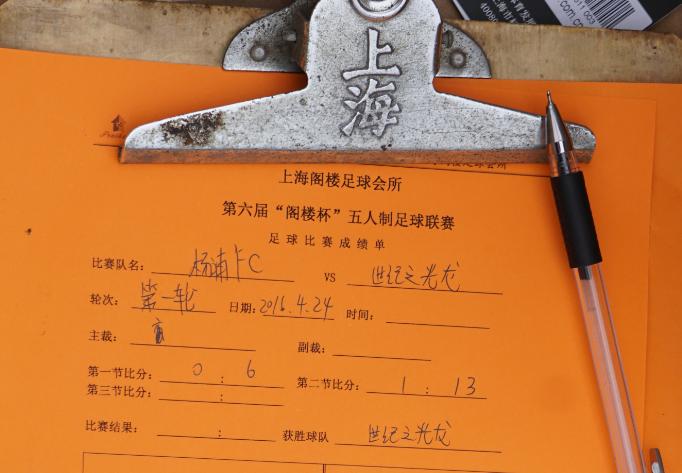 上海
上海阁楼足球会所
第六届“阁楼杯”五人制足球联赛
足球比赛成绩单
比赛队名： 杨浦FC VS 世纪之光龙
轮次： 第一轮 日期： 2016.4.24 时间：
主裁： 副裁：
第一节比分： 0 : 6 第二节比分： 1 : 13
第三节比分： :
比赛结果： : 获胜球队 世纪之光龙